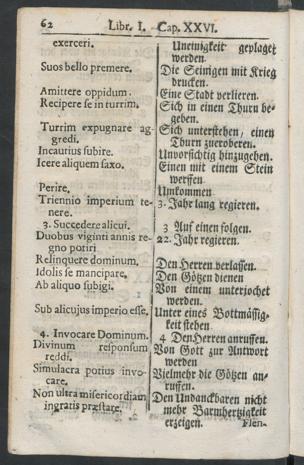 62 Libr. I. Cap. XXVI.
exerceri.
Suos bello premere.
Amittere oppidum.
Recipere se in turrim.
Turrim expugnare ag-
gredi.
Incautius subire.
Icere aliquem saxo.
Perire.
Triennio imperium te-
nere.
3. Succedere alicui.
Duobus viginti annis re-
gno potiri
Relinquere dominum.
Idolis se mancipare.
Ab aliquo subigi.
Sub alicujus imperio esse.
4. Invocare Dominum.
Divinum responsum
reddi.
Simulacra potius invo-
care.
Non ultra misericordiam
ingratis præstare.
Uneinigkeit geplaget
werden.
Die Seinigen mit Krieg
drucken.
Eine Stadt verlieren.
Sich in einen Thurn be-
geben.
Sich unterstehen, einen
Thurn zuerobern.
Unvorsichtig hinzugehen.
Einen mit einem Stein
werffen
Umkommen
3. Jahr lang regieren.
3 Auf einen folgen.
22. Jahr regieren.
Den Herren verlassen.
Den Götzen dienen
Von einem unterjochet
werden.
Unter eines Bottmässig-
keit stehen
4 Den Herren anruffen.
Von Gott zur Antwort
werden
Vielmehr die Götzen an-
ruffen.
Den Undanckbaren nicht
mehr Barmhertzigkeit
erzeigen. Flen-